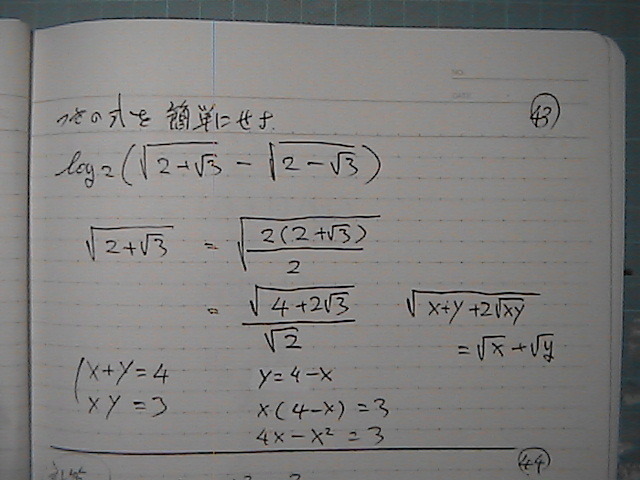 次の式を簡単にせよ. 43
log₂(√(2+√3) − √(2−√3))
√(2+√3) = √(2(2+√3)/2)
= √(4+2√3)/√2 √(x+y+2√xy)
= √x + √y
{x+y=4 y=4−x
xy=3 x(4−x)=3
4x−x²=3
44